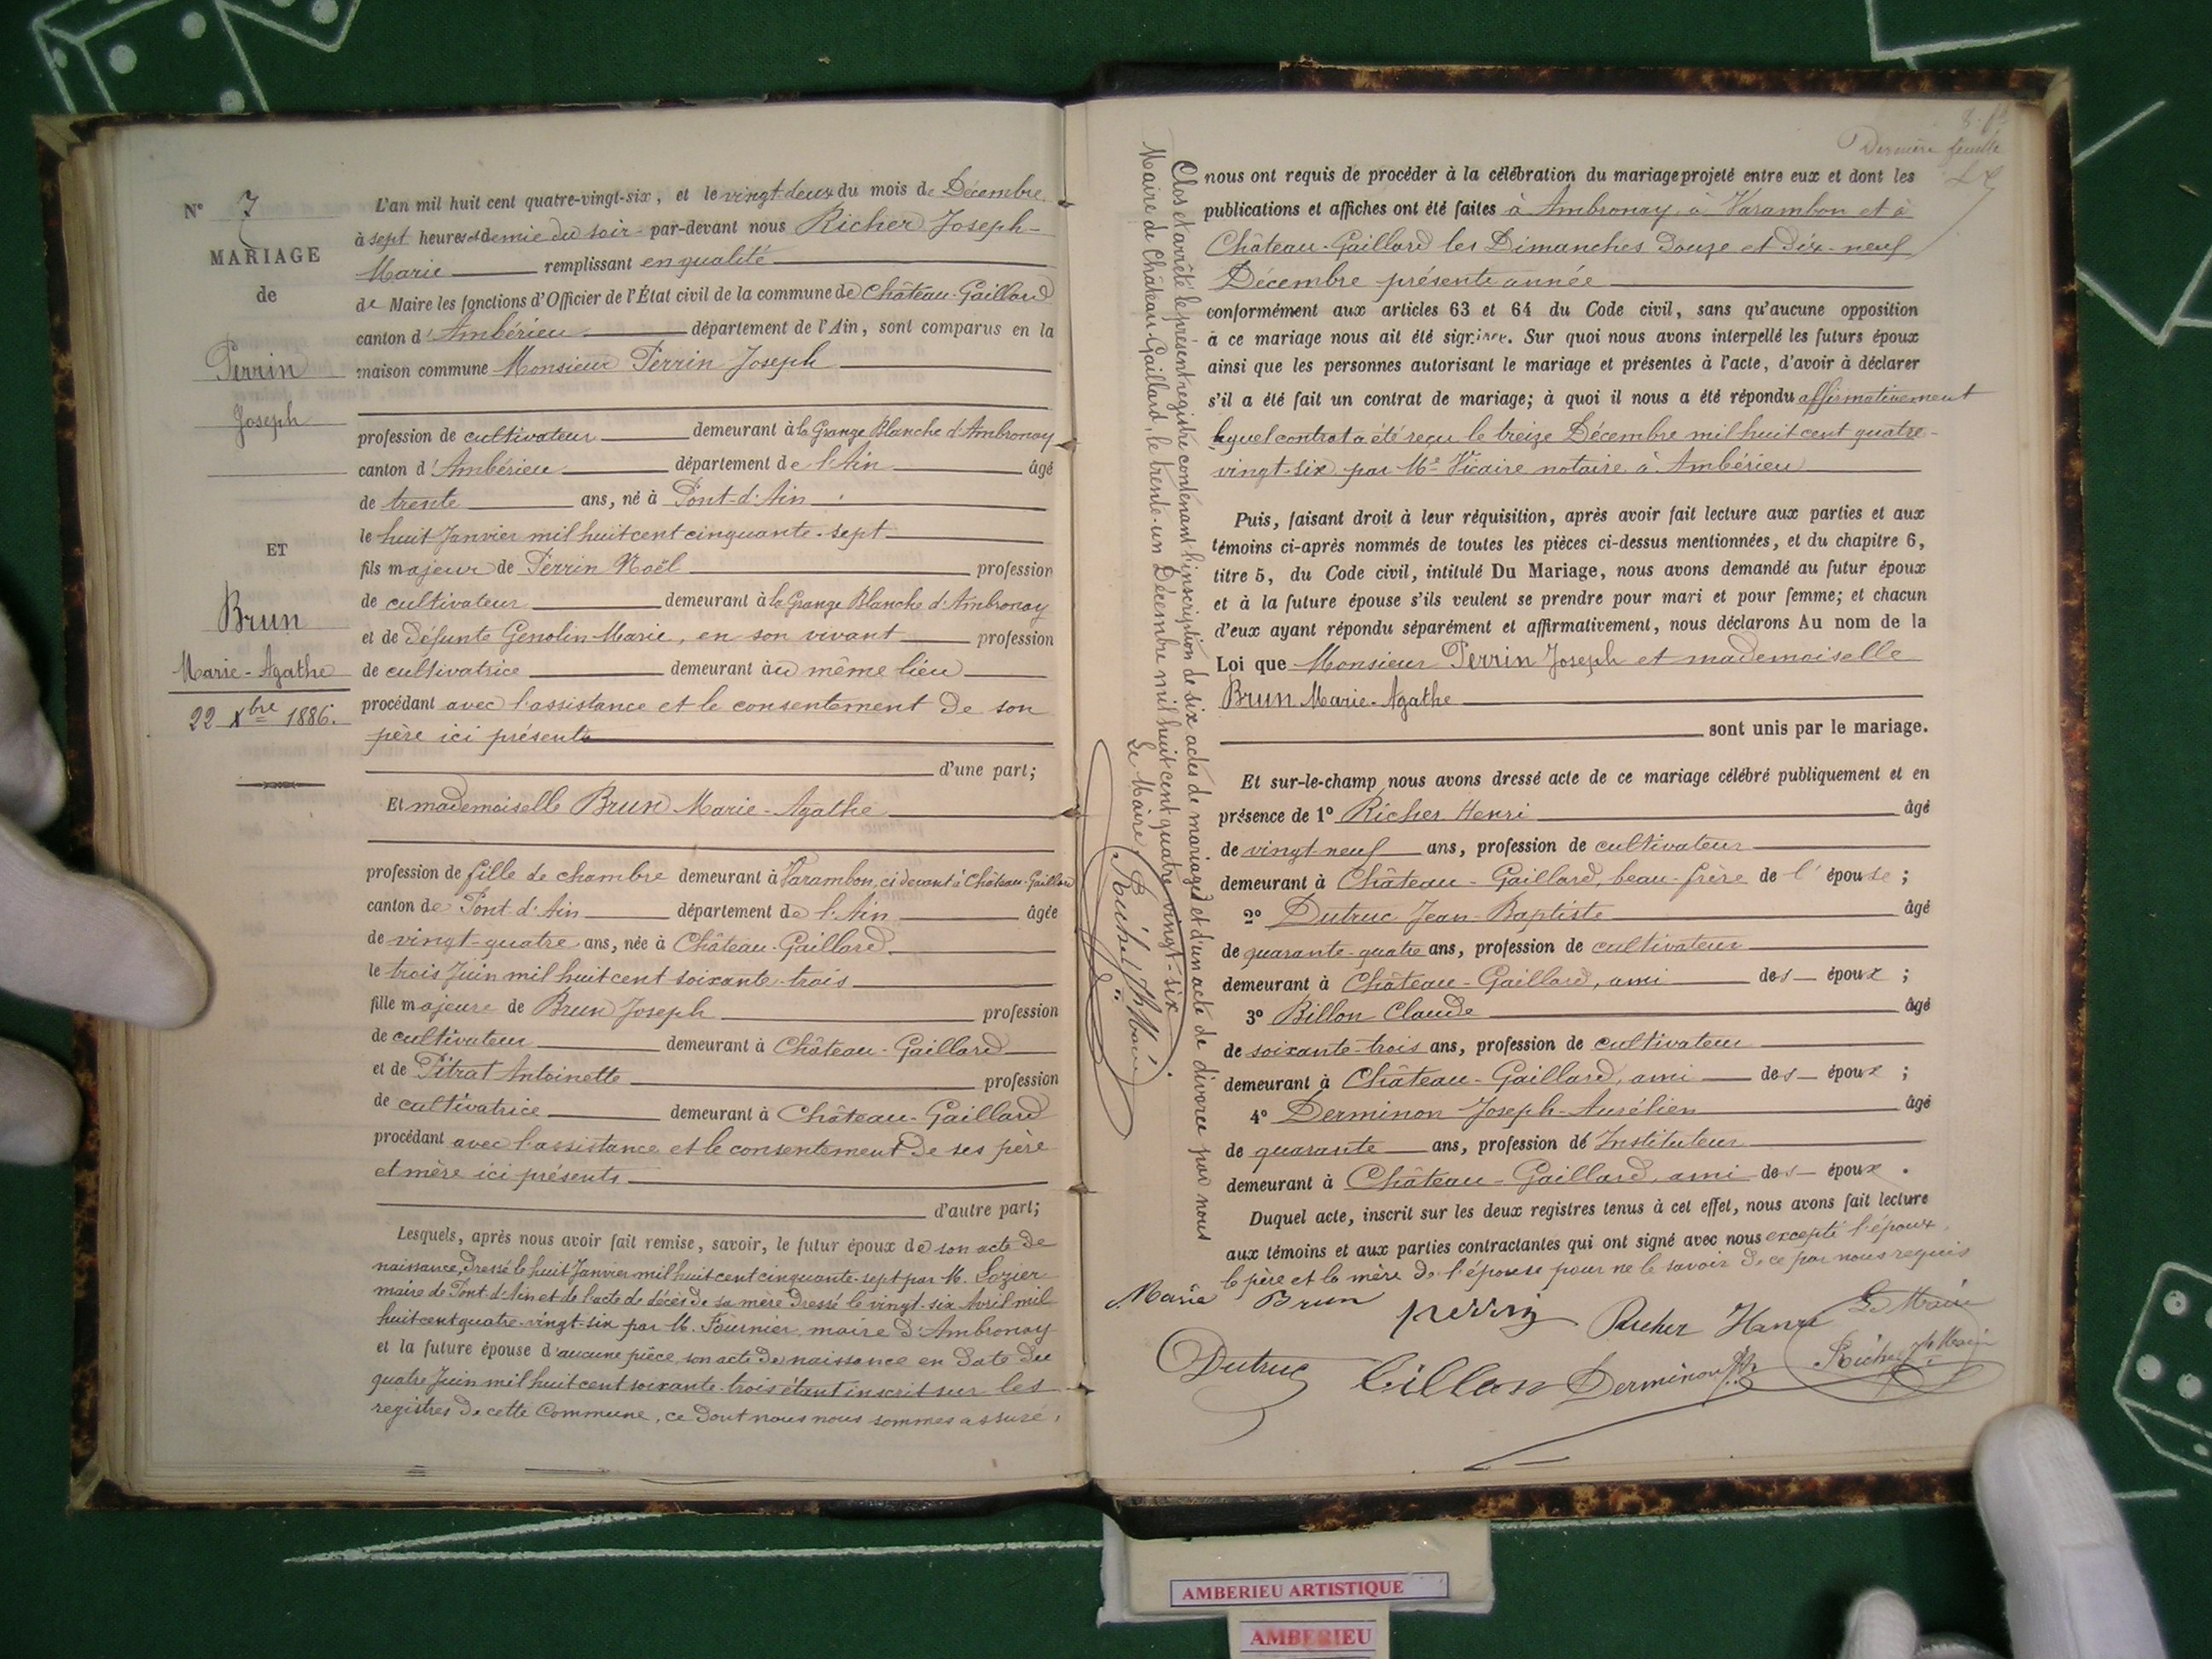 N° 7
MARIAGE
de
Perrin
Joseph
ET
Brun
Marie-Agathe
22 Xbre 1886.
L'an mil huit cent quatre-vingt-six, et le vingt-deux du mois de Décembre
à sept heures et demie du soir par-devant nous Richer Joseph-
Marie remplissant en qualité
de Maire les fonctions d'Officier de l'État civil de la commune de Château-Gaillard
canton d'Ambérieu département de l'Ain, sont comparus en la
maison commune Monsieur Perrin Joseph
profession de cultivateur demeurant à la Grange Blanche d'Ambronay
canton d'Ambérieu département de l'Ain âgé
de trente ans, né à Pont-d'Ain
le huit Janvier mil huit cent cinquante-sept
fils majeur de Perrin Noël profession
de cultivateur demeurant à la Grange Blanche d'Ambronay
et de défunte Genolin Marie, en son vivant profession
de cultivatrice demeurant au même lieu
procédant avec l'assistance et le consentement de son
père ici présent
d'une part;
Et mademoiselle Brun Marie-Agathe
profession de fille de chambre demeurant à Varambon, ci devant à Château-Gaillard
canton de Pont-d'Ain département de l'Ain âgée
de vingt-quatre ans, née à Château-Gaillard
le trois Juin mil huit cent soixante-trois
fille majeure de Brun Joseph profession
de cultivateur demeurant à Château-Gaillard
et de Pitrat Antoinette profession
de cultivatrice demeurant à Château-Gaillard
procédant avec l'assistance et le consentement de ses père
et mère ici présents
d'autre part;
Lesquels, après nous avoir fait remise, savoir, le futur époux de son acte de
naissance, dressé le huit Janvier mil huit cent cinquante-sept par M. Lozier
maire de Pont-d'Ain et de l'acte de décès de sa mère dressé le vingt-six Avril mil
huit cent quatre-vingt-six par M. Fournier, maire d'Ambronay
et la future épouse d'aucune pièce, son acte de naissance en date du
quatre Juin mil huit cent soixante-trois étant inscrit sur les
registres de cette Commune, ce dont nous nous sommes assuré,
Clos et arrêté le présent registre contenant l'inscription de six actes de mariage et d'un acte de divorce par nous
Maire de Château-Gaillard, le trente-un Décembre mil huit cent quatre-vingt-six
Le Maire
Dernière feuille
nous ont requis de procéder à la célébration du mariage projeté entre eux et dont les
publications et affiches ont été faites à Ambronay, à Varambon et à
Château-Gaillard les Dimanches douze et dix-neuf
Décembre présente année
conformément aux articles 63 et 64 du Code civil, sans qu'aucune opposition
à ce mariage nous ait été signifiée. Sur quoi nous avons interpellé les futurs époux
ainsi que les personnes autorisant le mariage et présentes à l'acte, d'avoir à déclarer
s'il a été fait un contrat de mariage; à quoi il nous a été répondu affirmativement
lequel contrat a été reçu le treize Décembre mil huit cent quatre-
vingt-six par Me Vicaire notaire à Ambérieu
Puis, faisant droit à leur réquisition, après avoir fait lecture aux parties et aux
témoins ci-après nommés de toutes les pièces ci-dessus mentionnées, et du chapitre 6,
titre 5, du Code civil, intitulé Du Mariage, nous avons demandé au futur époux
et à la future épouse s'ils veulent se prendre pour mari et pour femme; et chacun
d'eux ayant répondu séparément et affirmativement, nous déclarons Au nom de la
Loi que Monsieur Perrin Joseph et mademoiselle
Brun Marie-Agathe
sont unis par le mariage.
Et sur-le-champ nous avons dressé acte de ce mariage célébré publiquement et en
présence de 1° Richer Henri âgé
de vingt-neuf ans, profession de cultivateur
demeurant à Château-Gaillard, beau-frère de l'épouse;
2° Dutruc Jean-Baptiste âgé
de quarante-quatre ans, profession de cultivateur
demeurant à Château-Gaillard, ami des époux;
3° Billon Claude âgé
de soixante-trois ans, profession de cultivateur
demeurant à Château-Gaillard, ami des époux;
4° Derminon Joseph-Aurélien âgé
de quarante ans, profession de Instituteur
demeurant à Château-Gaillard, ami des époux.
Duquel acte, inscrit sur les deux registres tenus à cet effet, nous avons fait lecture
aux témoins et aux parties contractantes qui ont signé avec nous excepté l'époux,
le père et la mère de l'épouse pour ne le savoir de ce par nous requis
Marie Brun perrin Richer Henri Le Maire
Dutruc billon Derminon
AMBERIEU ARTISTIQUE
AMBERIEU